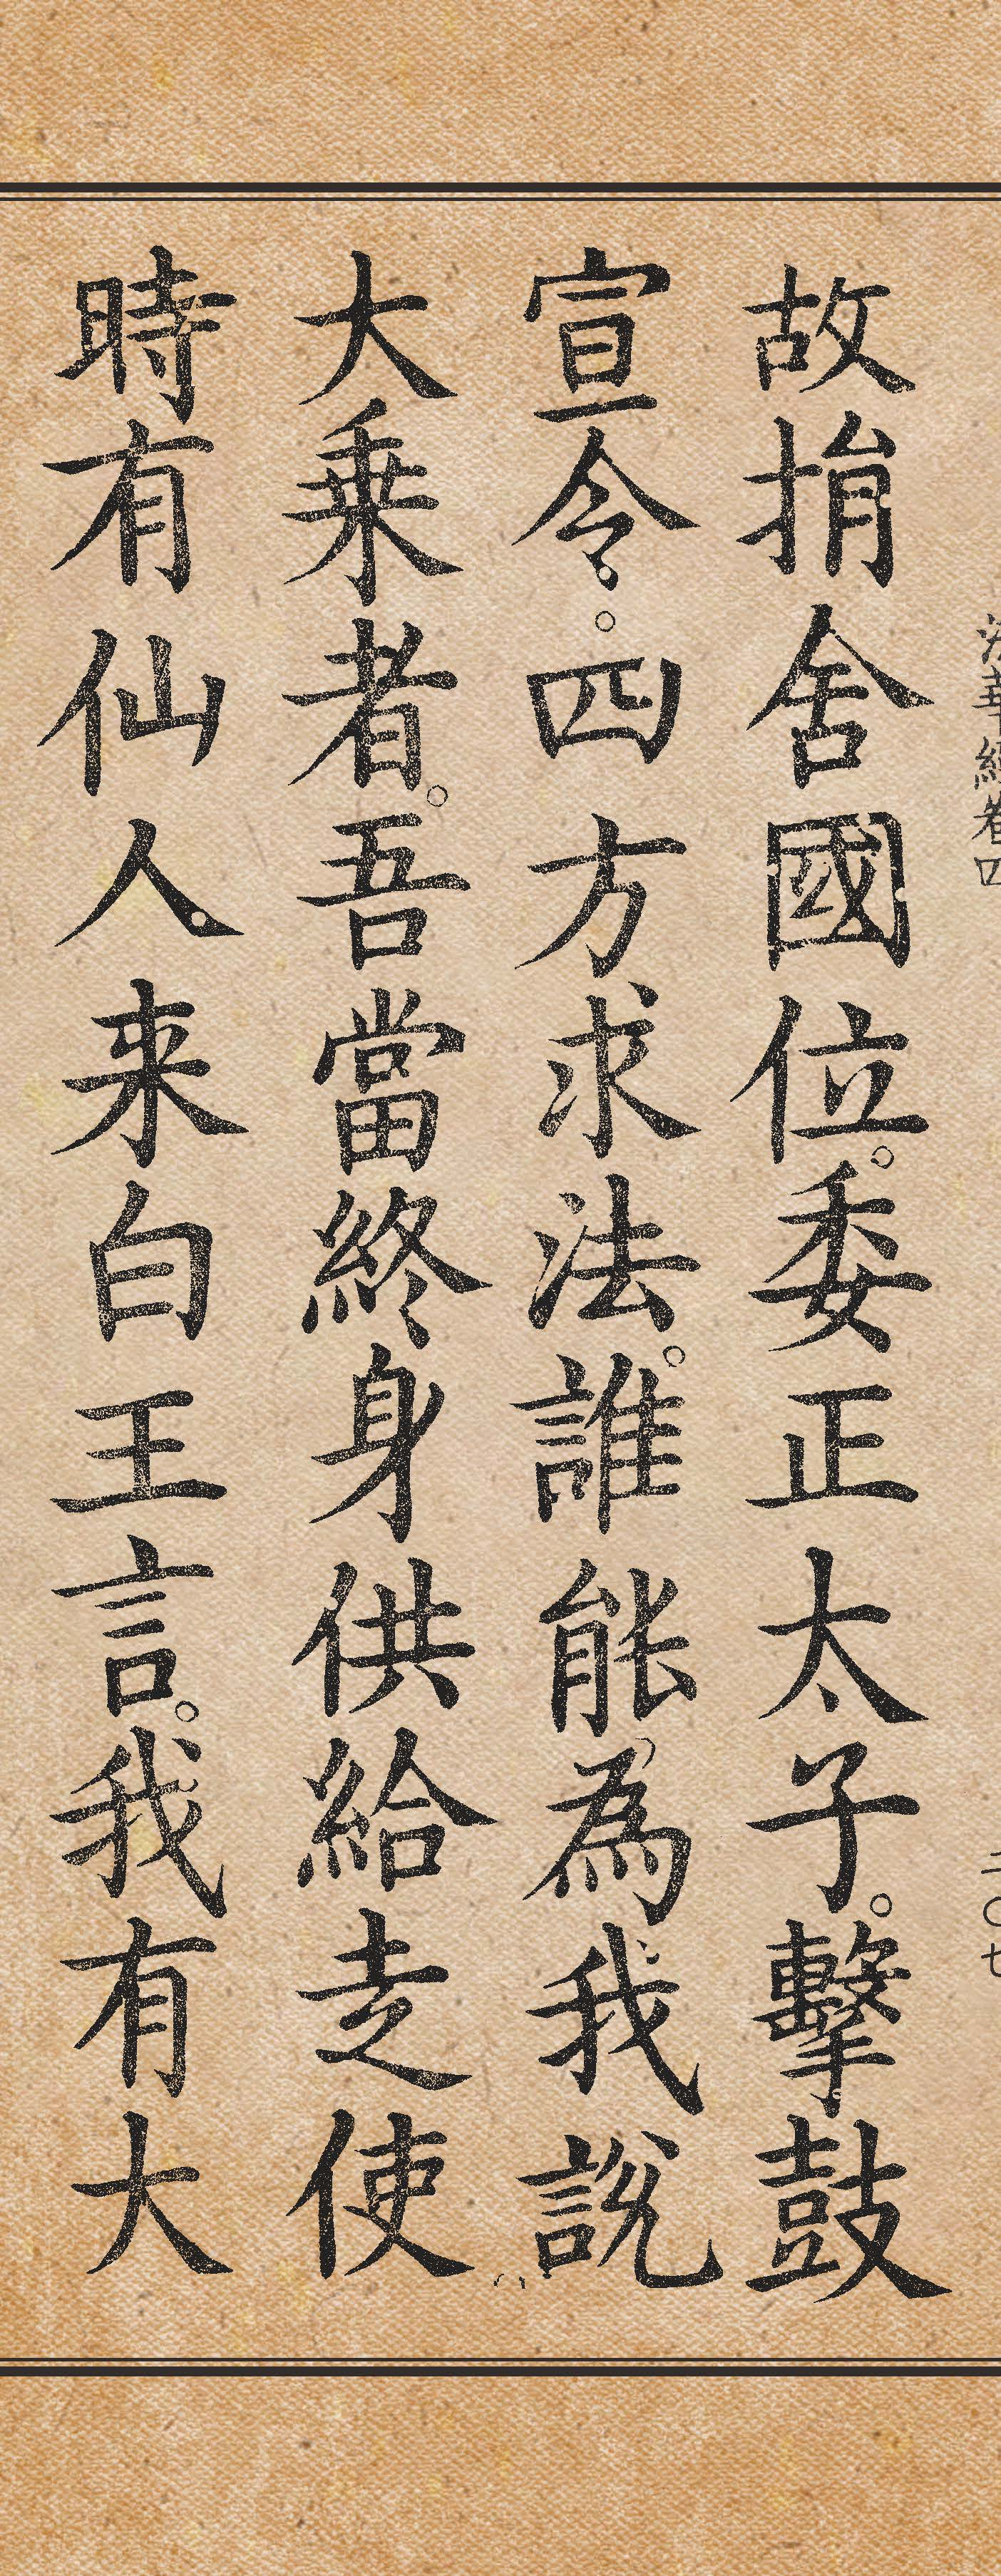 法華經卷四
二〇七
故捐舍國位。委正太子。擊鼓
宣令。四方求法。誰能為我說
大乗者。吾當終身供給走使
時有仙人来白王言。我有大